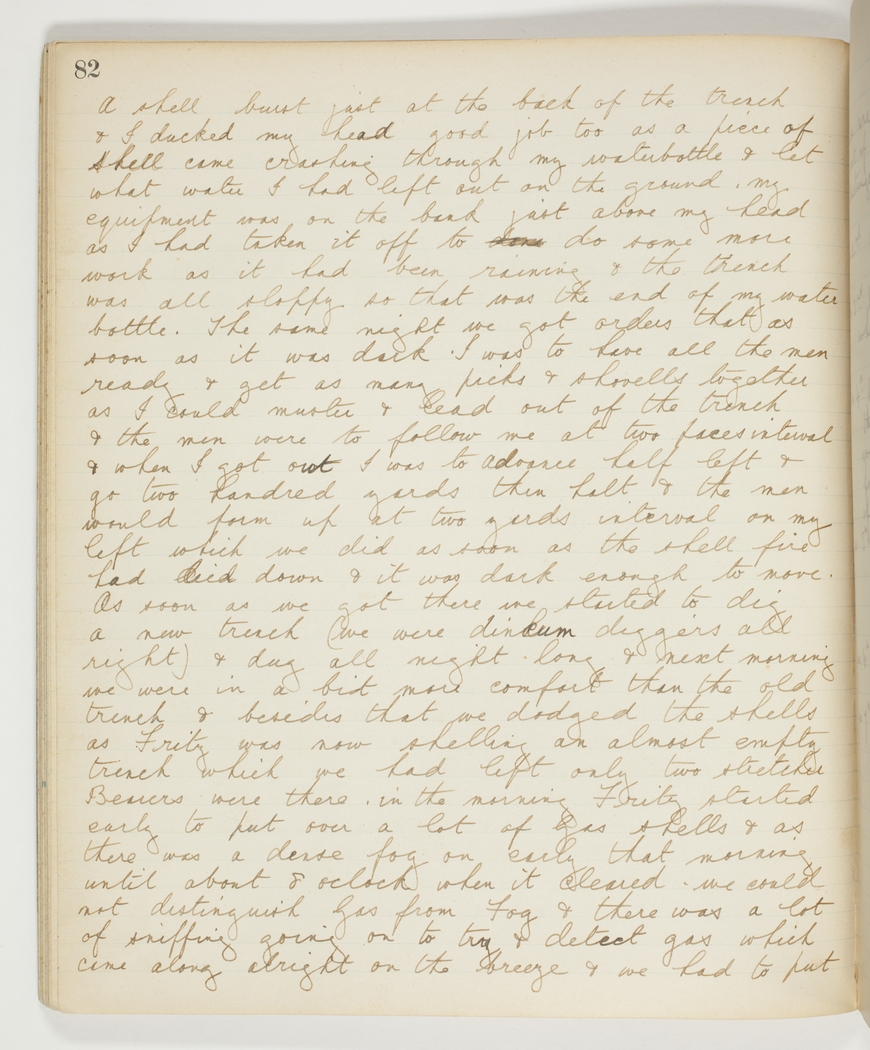 82
A shell burst just at the back of the trench
& I ducked my head good job too as a piece of
shell came crashing through my waterbottle & let
what water I had left out on the ground. my
equipment was on the bank just above my head
as I had taken it off to do some more
work as it had been raining & the trench
was all sloppy so that was the end of my water
bottle. The same night we got orders that as
soon as it was dark I was to have all the men
ready & get as many picks & shovells together
as I could muster & lead out of the trench
& the men were to follow me at two paces interval
& when I got out I was to advance half left &
go two hundred yards then halt & the men
would form up at two yards interval on my
left which we did as soon as the shell fire
had died down & it was dark enough to move.
As soon as we got there we started to dig
a new trench (we were dinkum diggers all
right) & dug all night long & next morning
we were in a bit more comfort than the old
trench & besides that we dodged the shells
as Fritz was now shelling an almost empty
trench which we had left only two stretcher
Bearers were there. in the morning Fritz started
early to put over a lot of Gas shells & as
there was a dense fog on early that morning
until about 8 oclock when it cleared. we could
not distinguish Gas from Fog & there was a lot
of sniffing going on to try & detect gas which
came along alright on the breeze & we had to put